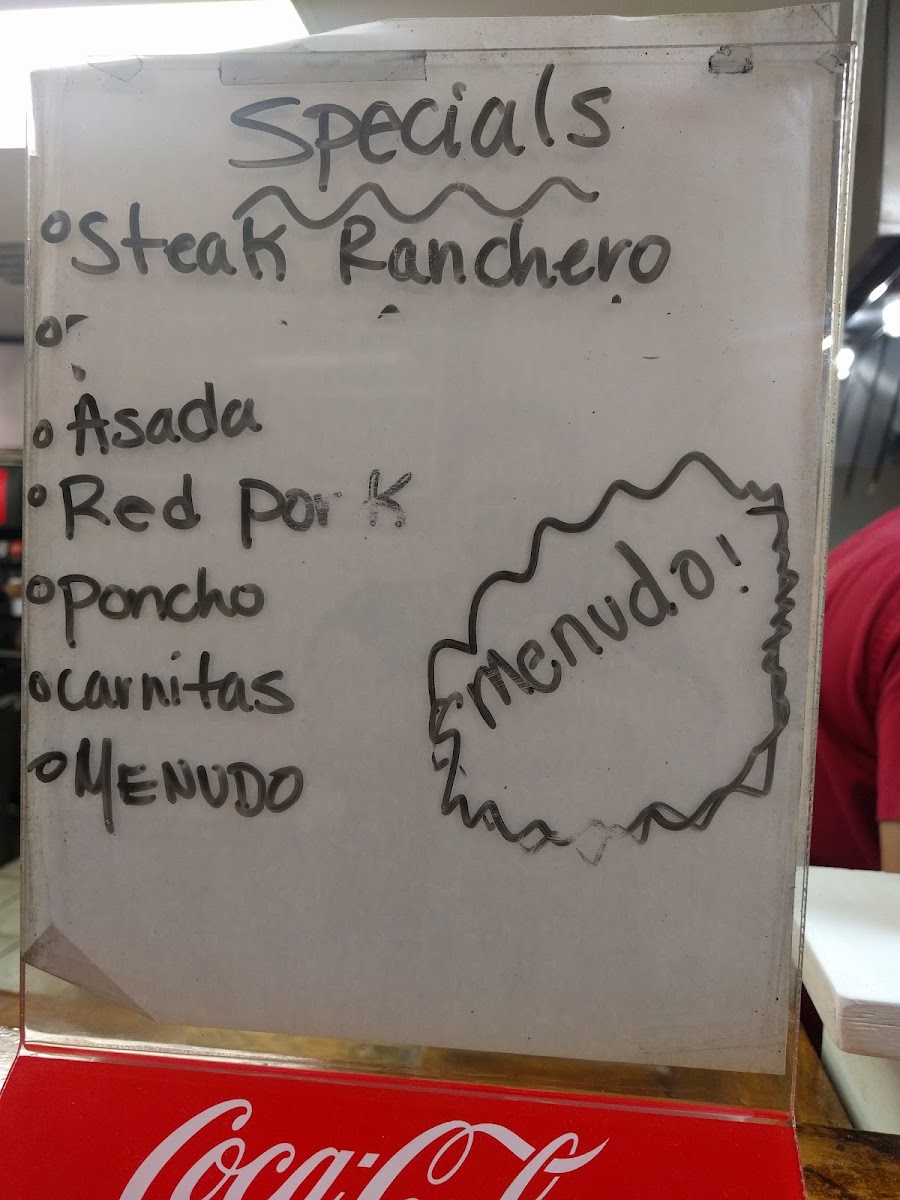 Specials
Steak Ranchero
Asada
Red Pork
Poncho
Carnitas
MENUDO
Menudo!
Coca-Co